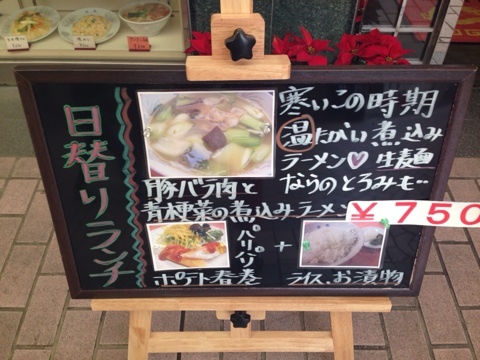 日替りランチ
寒いこの時期
温たかい煮込み
ラーメン♡生麺
ならのとろみも…
豚バラ肉と
青梗菜の煮込みラーメン
￥750
パリパリ
ポテト春巻
+
ライス、お漬物